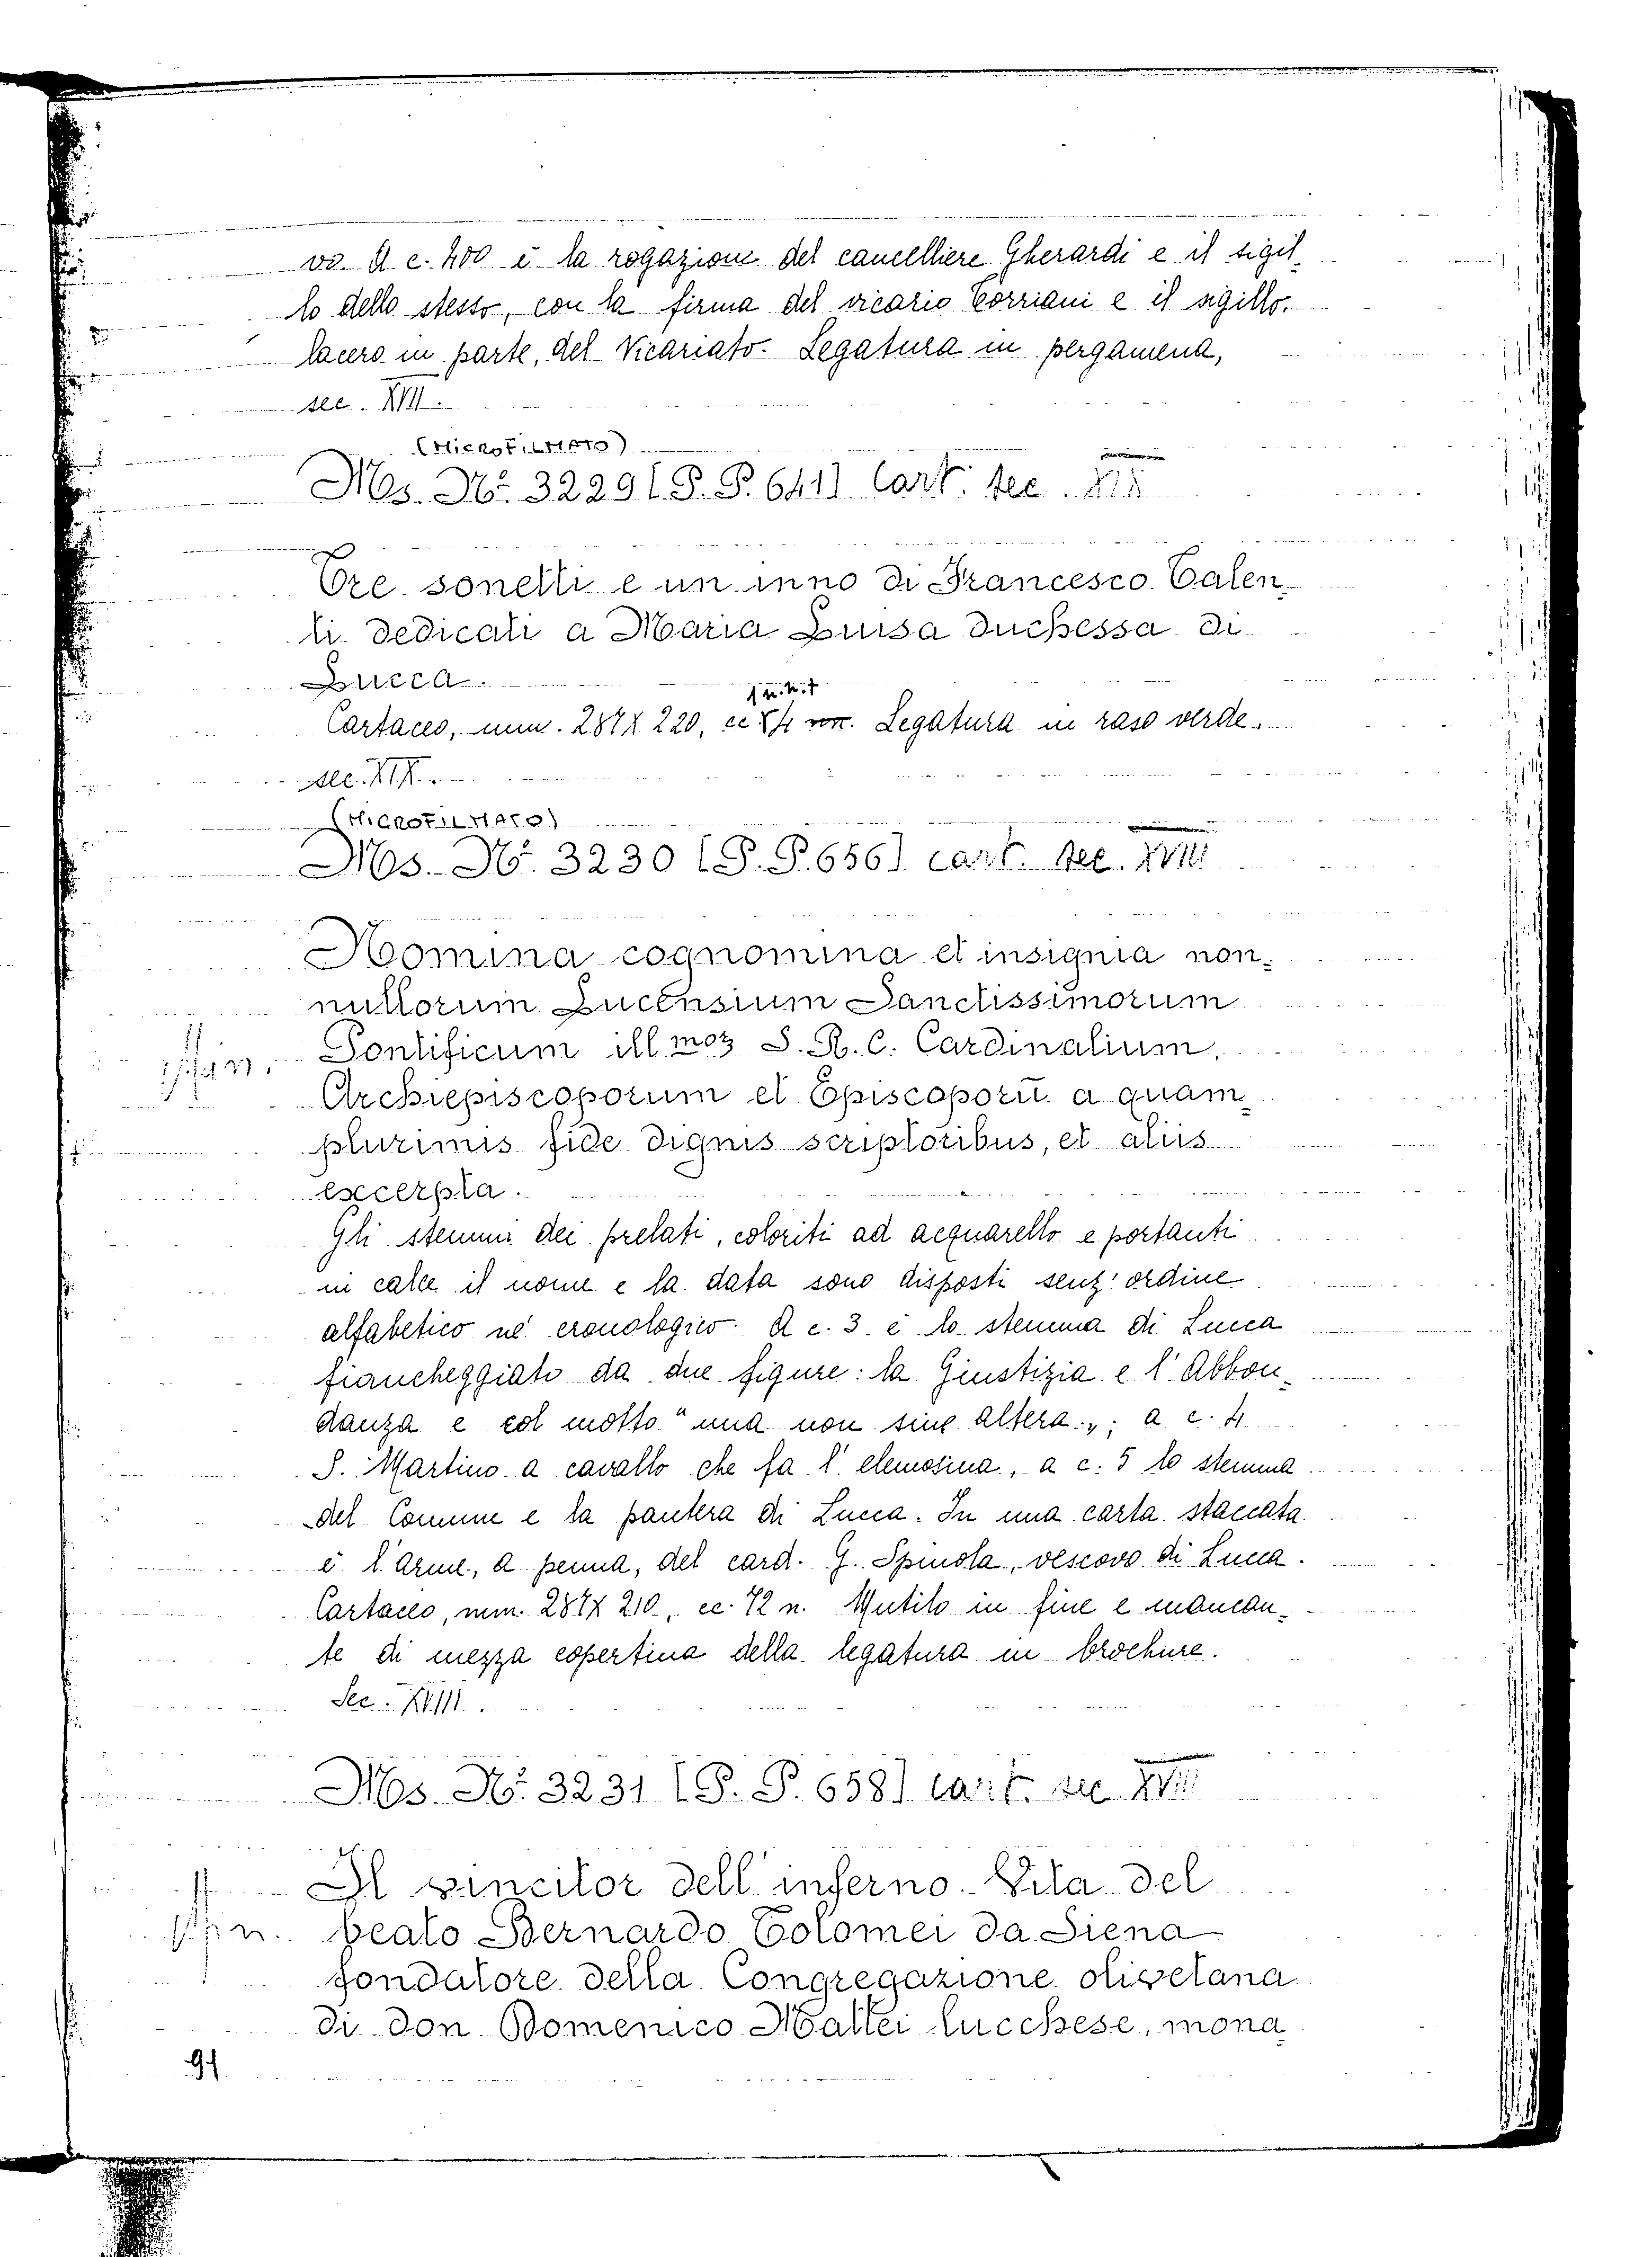 vo. A c. 400 è la rogazione del cancelliere Gherardi e il sigil-
lo dello stesso, con la firma del vicario Torriani e il sigillo,
lacero in parte, del Vicariato. Legatura in pergamena,
sec. XVII.
(MICROFILMATO)
Ms. N°. 3229 [P. P. 641] Cart. sec. XIX
Tre sonetti e un inno di Francesco Talen-
ti dedicati a Maria Luisa duchessa di
Lucca.
Cartaceo, mm. 287X220, cc. Legatura in raso verde.
sec. XIX.
(MICROFILMATO)
Ms. N°. 3230 [P. P. 656] cart. sec. XVIII
Nomina cognomina et insignia non-
nullorum Lucensium Sanctissimorum
Pontificum ill.moꝝ S. R. C. Cardinalium,
Archiepiscoporum et Episcoporū a quam-
plurimis fide dignis scriptoribus, et aliis
excerpta.
Gli stemmi dei prelati, coloriti ad acquarello e portanti
in calce il nome e la data sono disposti senz'ordine
alfabetico nè cronologico. A c. 3 è lo stemma di Lucca
fiancheggiato da due figure: la Giustizia e l'Abbon-
danza e col motto "una non sine altera„; a c. 4
S. Martino a cavallo che fa l'elemosina, a c. 5 lo stemma
del Comune e la pantera di Lucca. In una carta staccata
è l'arme, a penna, del card. G. Spinola, vescovo di Lucca.
Cartaceo, mm. 287X210, cc. 72 n. Mutilo in fine e mancan-
te di mezza copertina della legatura in brochure.
Sec. XVIII.
Ms. N°. 3231 [P. P. 658] cart. sec. XVII
Il vincitor dell'inferno. Vita del
beato Bernardo Tolomei da Siena
fondatore della Congregazione olivetana
di don Domenico Mattei lucchese, mona-
91